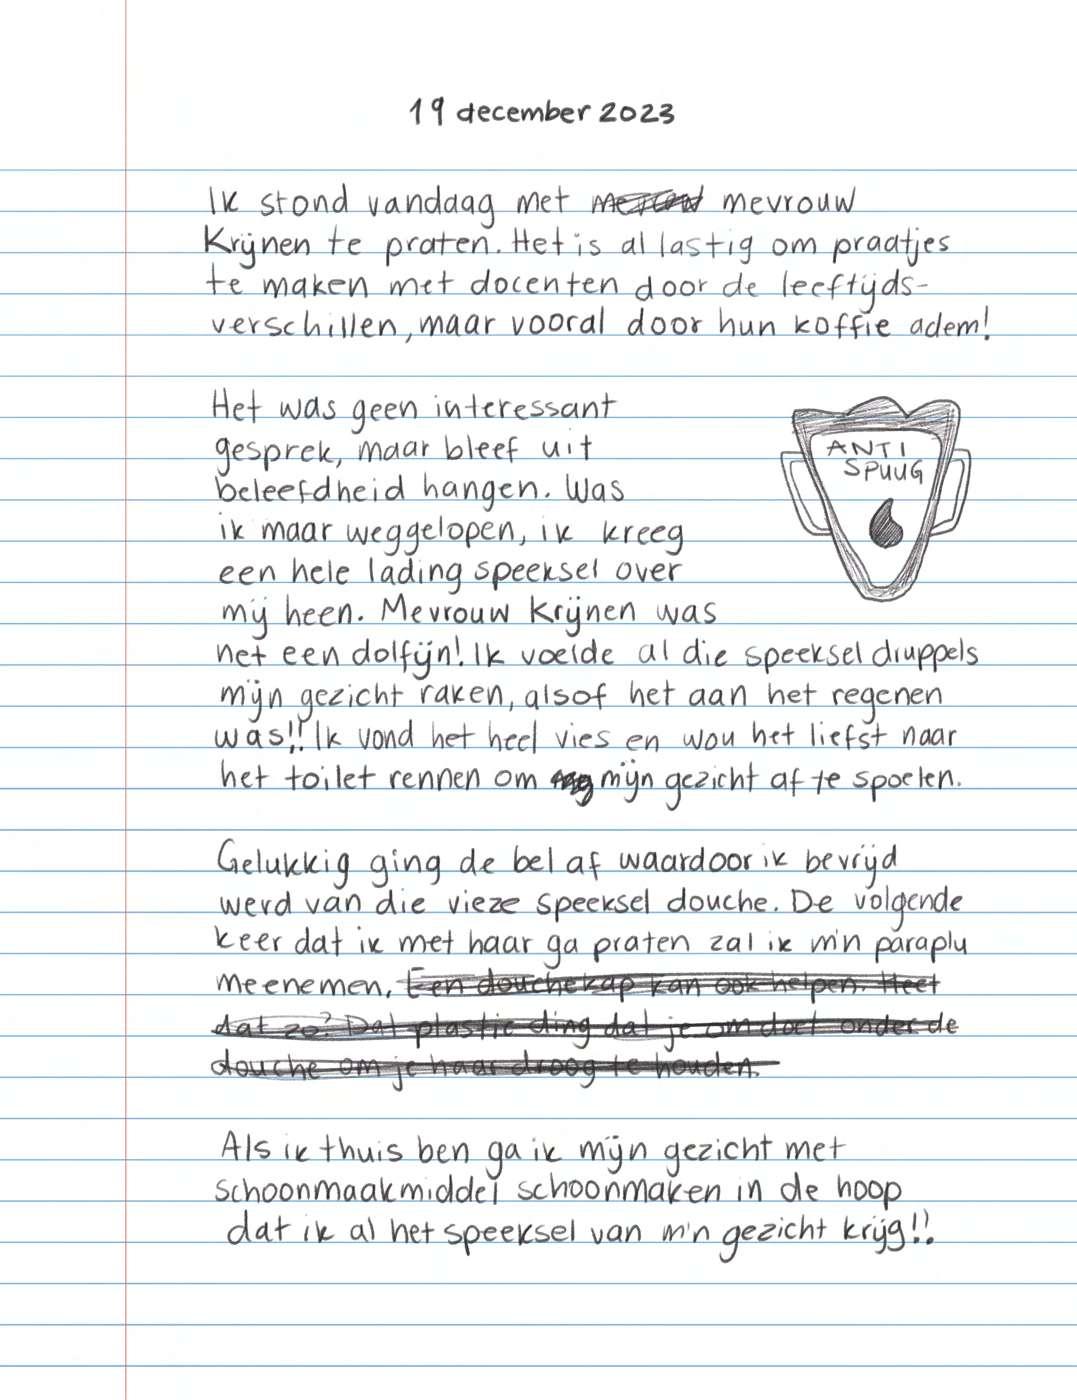 19 december 2023
Ik stond vandaag met mevrouw
Krijnen te praten. Het is al lastig om praatjes
te maken met docenten door de leeftijds-
verschillen, maar vooral door hun koffie adem!
Het was geen interessant
gesprek, maar bleef uit
beleefdheid hangen. Was
ik maar weggelopen, ik kreeg
een hele lading speeksel over
mij heen. Mevrouw Krijnen was
net een dolfijn! Ik voelde al die speeksel druppels
mijn gezicht raken, alsof het aan het regenen
was!! Ik vond het heel vies en wou het liefst naar
het toilet rennen om mijn gezicht af te spoelen.
ANTI
SPUUG
Gelukkig ging de bel af waardoor ik bevrijd
werd van die vieze speeksel douche. De volgende
keer dat ik met haar ga praten zal ik m'n paraplu
meenemen. Een douchekap kan ook helpen. Heet
dat zo? Dat plastic ding dat je om doet onder de
douche om je haar droog te houden.
Als ik thuis ben ga ik mijn gezicht met
schoonmaakmiddel schoonmaken in de hoop
dat ik al het speeksel van m'n gezicht krijg!!